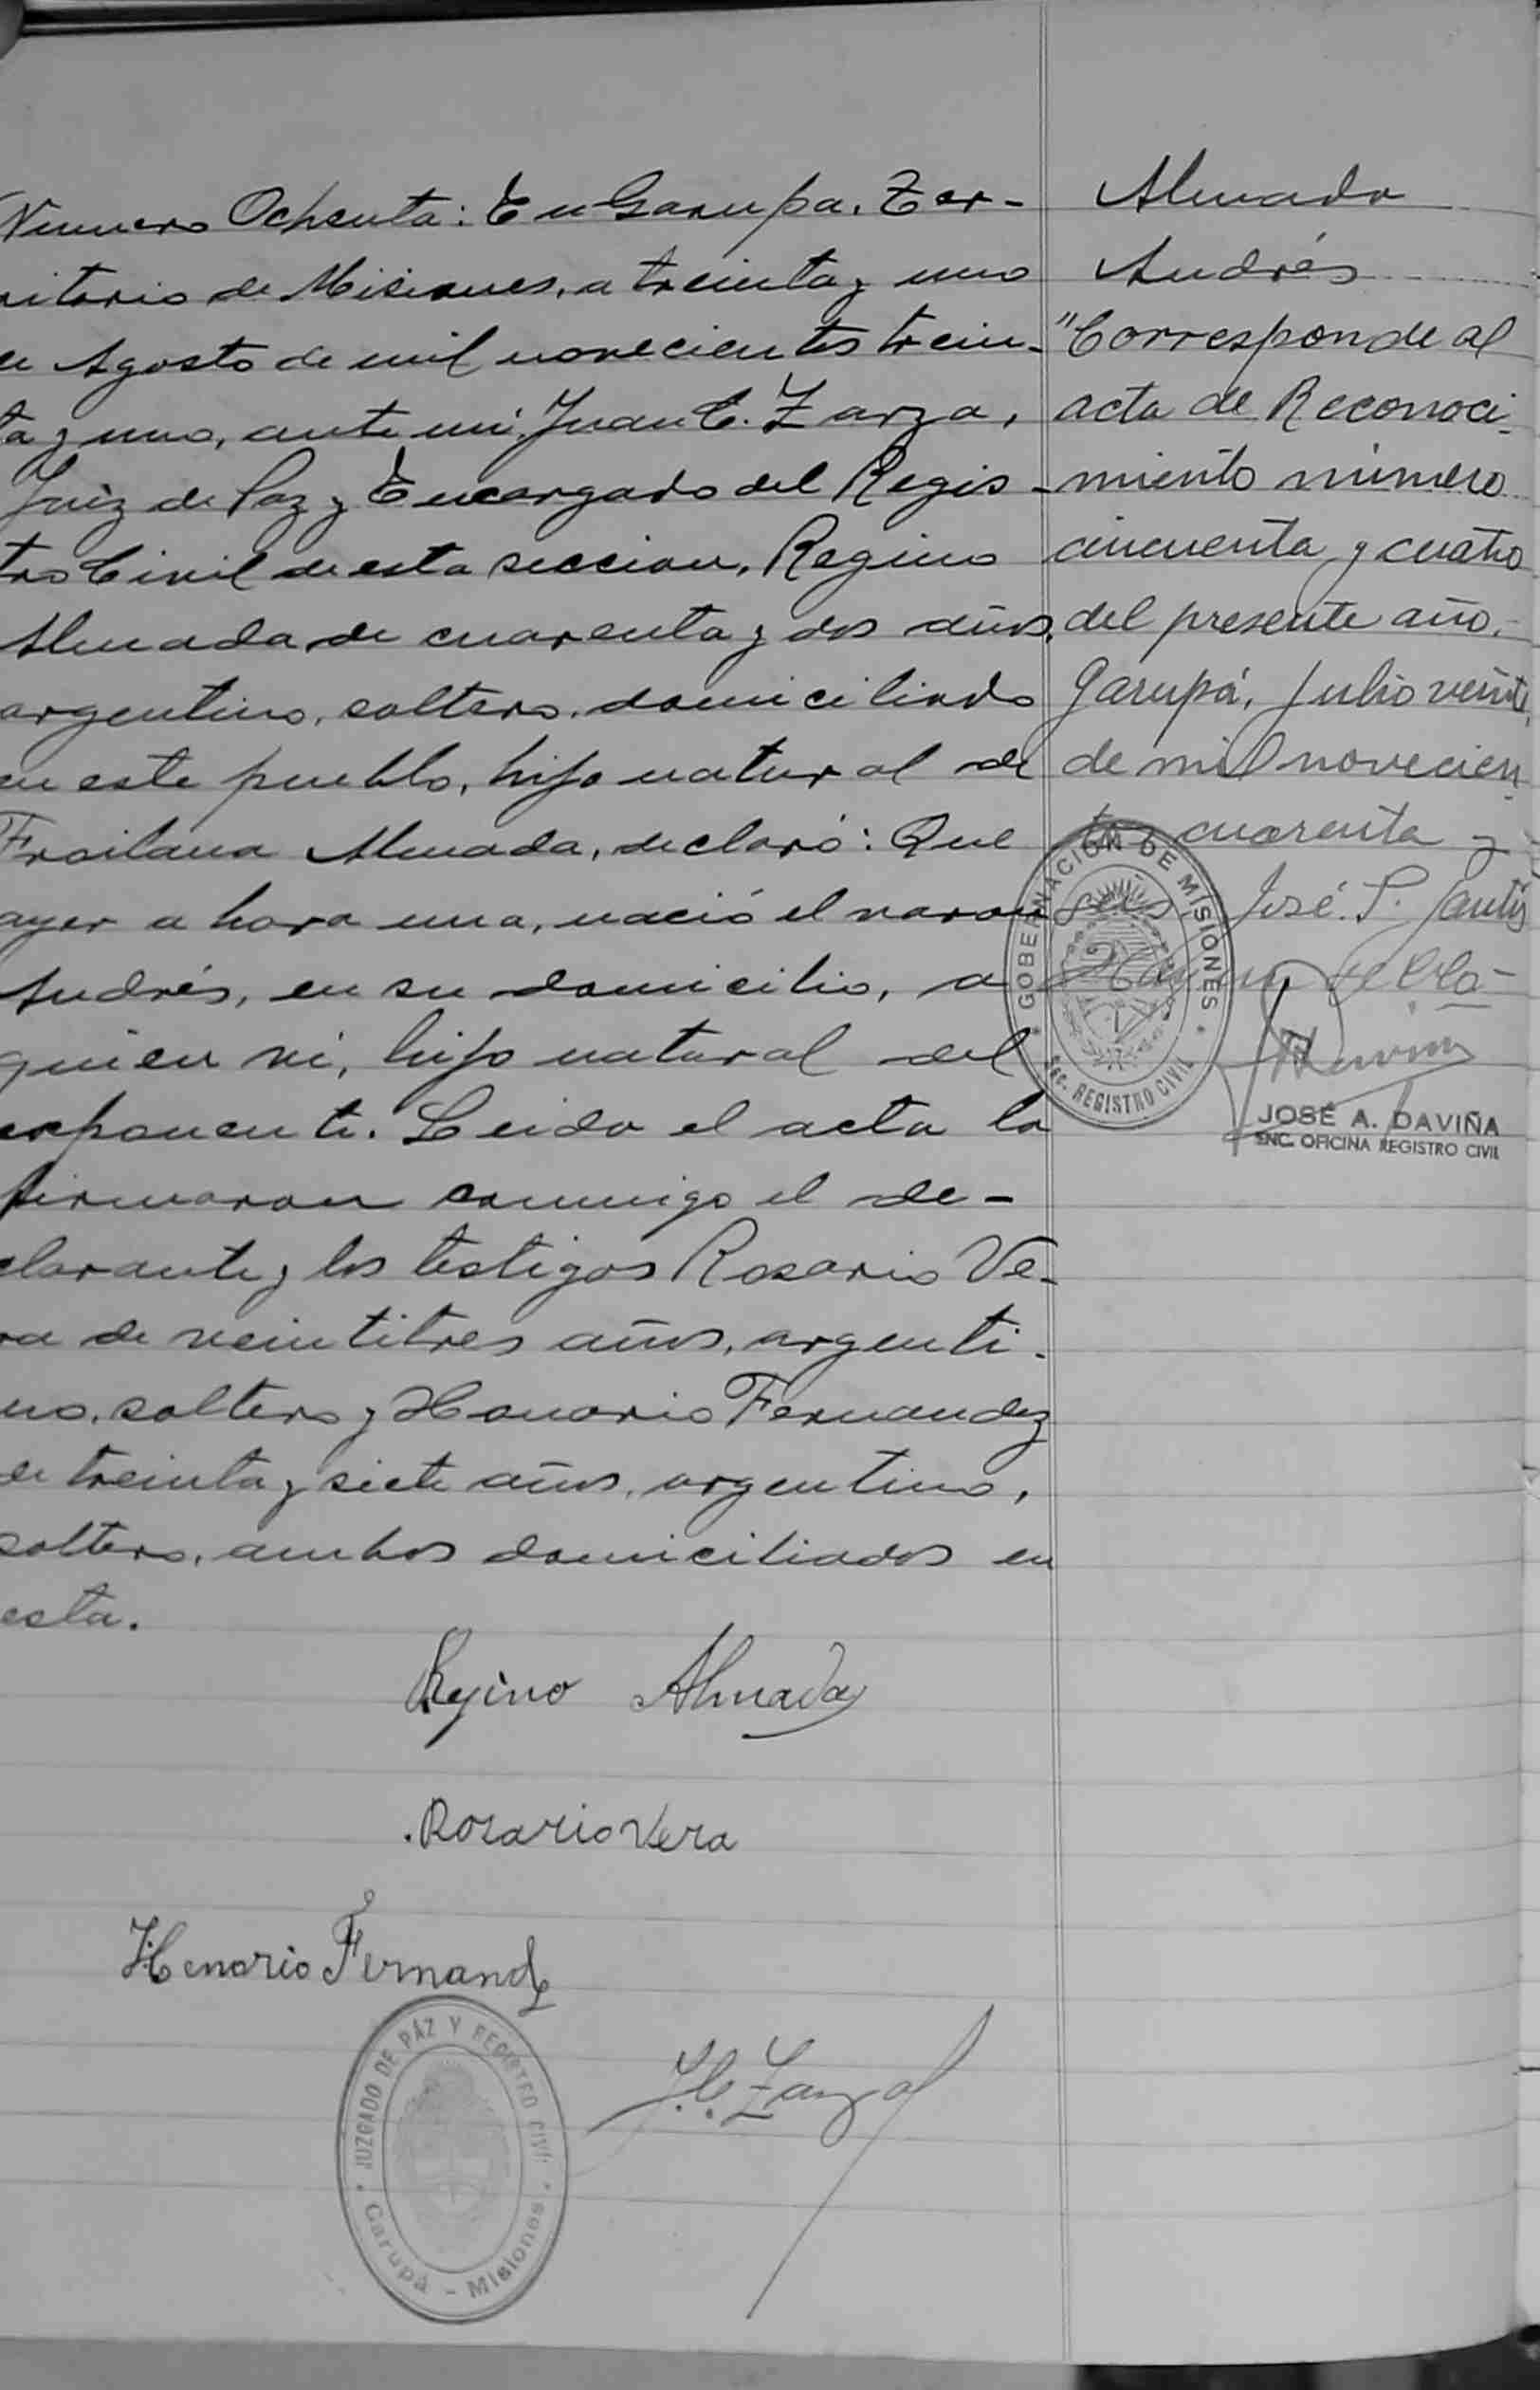 Numero Ochenta: En Garupa, Ter-
ritorio de Misiones, a treinta y uno
de Agosto de mil novecientos trein-
ta y uno, ante mi Juan C. Zarza,
Juez de Paz y Encargado del Regis-
tro Civil de esta seccion, Regino
Almada de cuarenta y dos años,
argentino, soltero, domiciliado
en este pueblo, hijo natural de
Froilana Almada, declaró: Que
ayer a hora una, nació el varon
Andrés, en su domicilio, a
quien vi, hijo natural del
exponente. Leida el acta la
firmaron conmigo el de-
clarante y los testigos Rosario Ve-
ra de veintitres años, argenti-
no, soltero y Honorio Fernandez
de treinta y siete años, argentino,
soltero, ambos domiciliados en
esta.
Regino Almada
Rosario Vera
Honorio Fernandz
J. C. Zarza
JUZGADO DE PÁZ Y REGISTRO CIVIL
Garupá - Misiones
Almada
Andrés
"Corresponde al
acta de Reconoci-
miento número
cincuenta y cuatro
del presente año.-
Garupá, Julio veinte,
de mil novecien-
tos cuarenta y
seis, José. P. Santís
GOBERNACIÓN DE MISIONES
Sec. REGISTRO CIVIL
JOSÉ A. DAVIÑA
ENC. OFICINA REGISTRO CIVIL